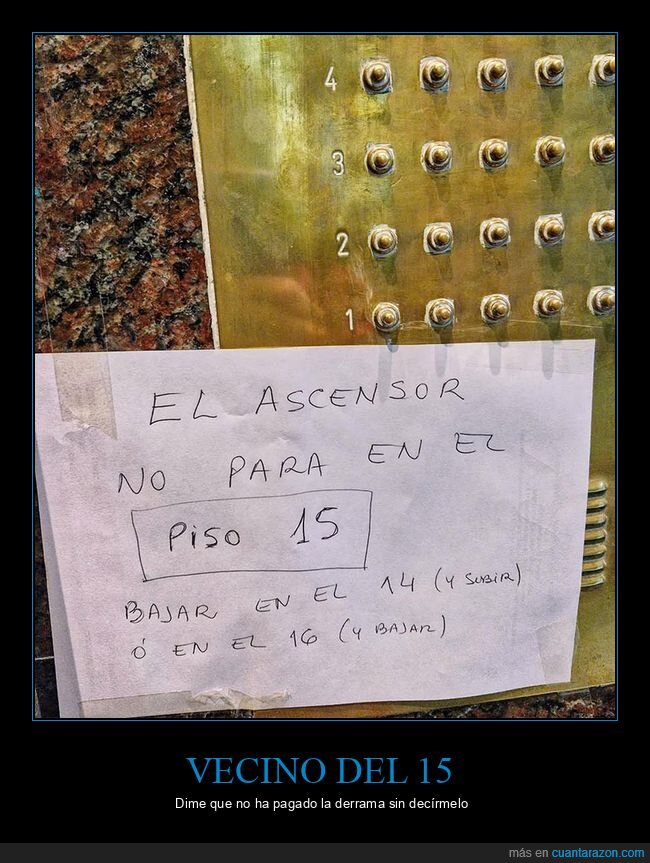 4
3
2
1
EL ASCENSOR
NO PARA EN EL
PISO 15
BAJAR EN EL 14 (Y SUBIR)
Ó EN EL 16 (Y BAJAR)
VECINO DEL 15
Dime que no ha pagado la derrama sin decírmelo
más en cuantarazon.com